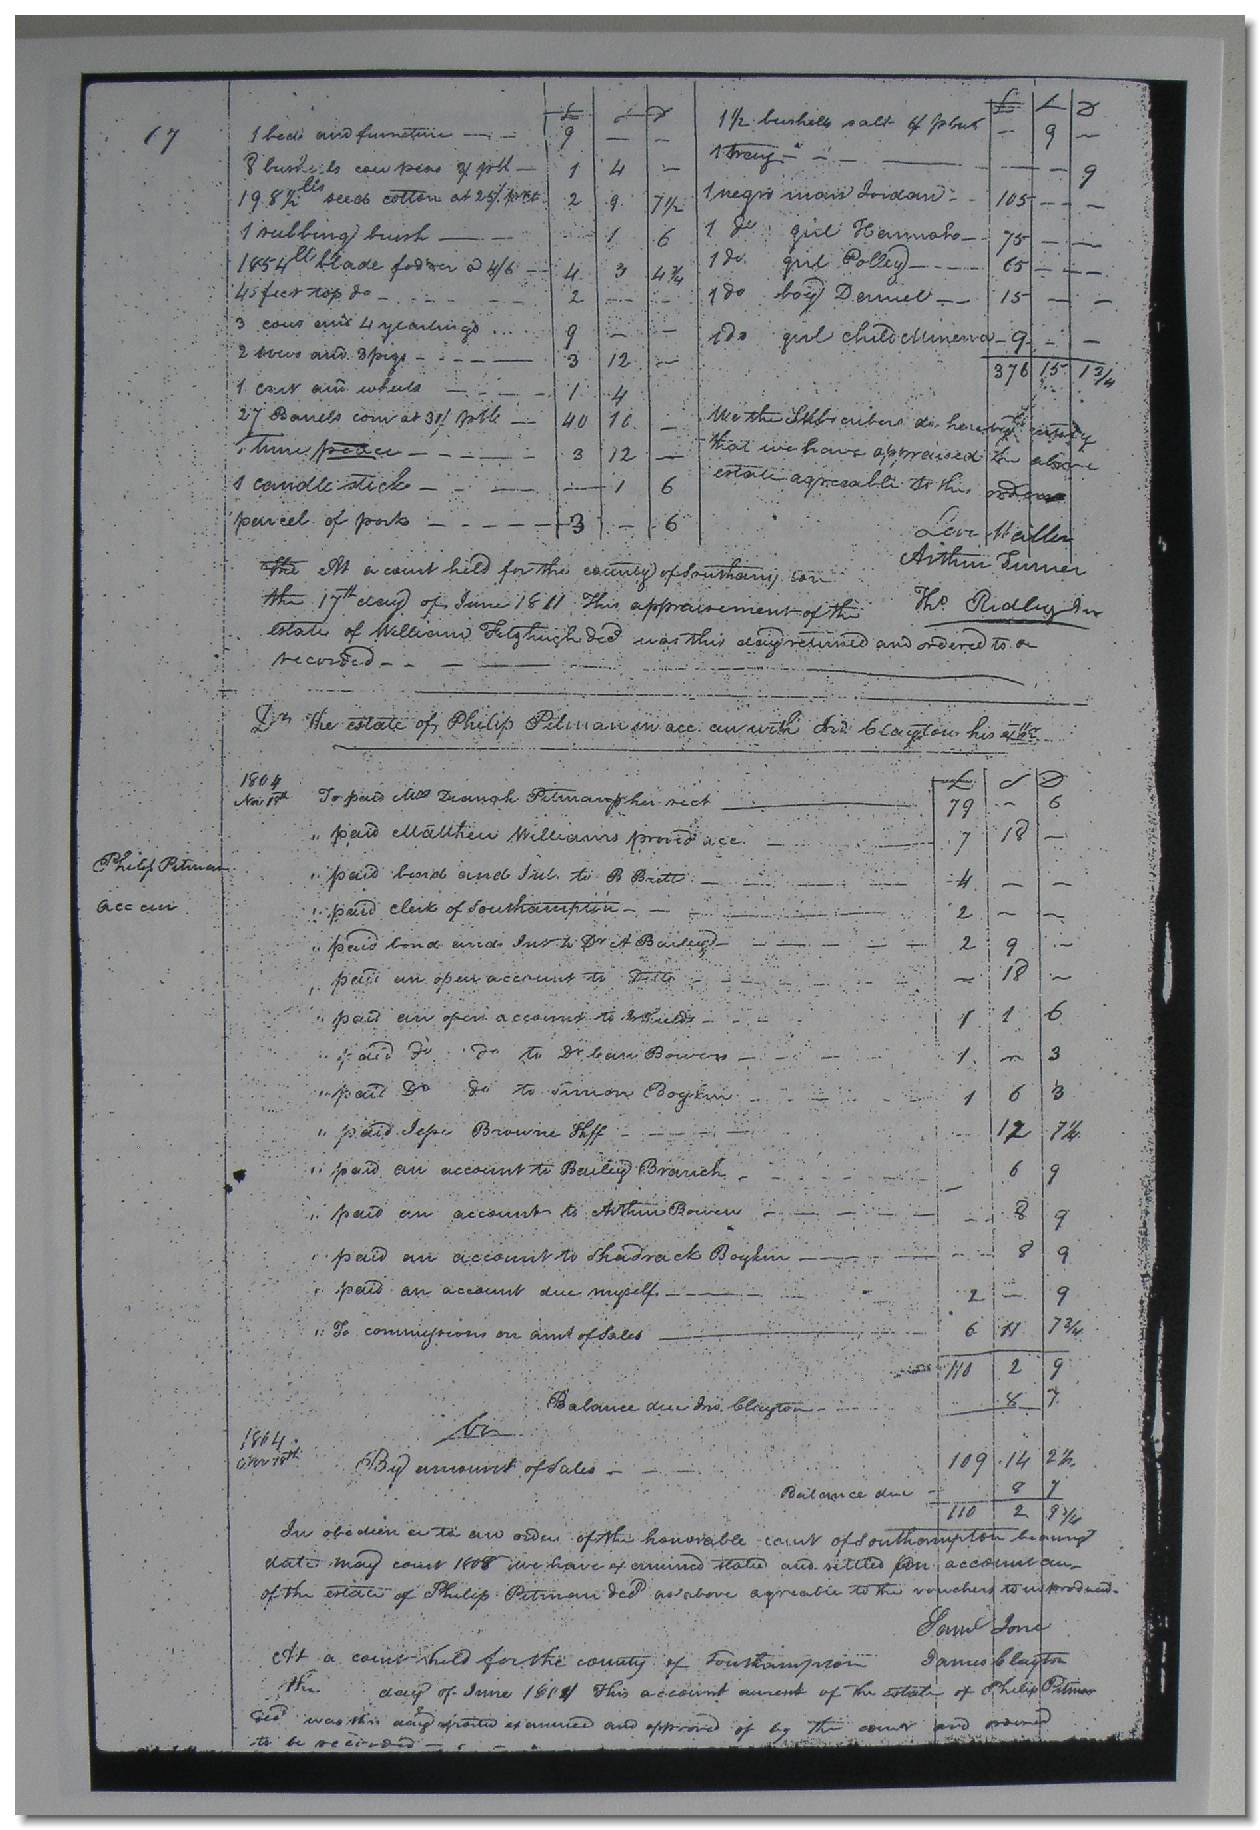 17
£ s D
1 bed and furneture 9 — —
8 bushels cow peas 1 4 —
198½ lbs seed cotton at 25/ 2 9 7½
1 rubbing brush — 1 6
1854 lb blade fodder a 4/6 4 3 4¾
45 feet top do 2 — —
3 cows and 4 yearlings 9 — —
2 sows and 3 pigs 3 12 —
1 cart and wheels 1 4
27 Barrels corn at 30/ 40 10 —
3 12 —
1 candle stick — 1 6
parcel of pork 3 — 6
£ s D
1½ bushells salt — 9 —
1 tray — — 9
1 negro man Jordan 105 — —
1 do girl Hannah 75 — —
1 do girl Polley 65 — —
1 do boy Daniel 15 — —
1 do girl child Minerva 9 — —
376 15 1¾
We the Subscribers do hereby certify
that we have appraised the above
estate agreeable to this order
Levi Waller
Arthur Turner
Thos. Ridley Jnr
the At a court held for the county of Southampton
the 17th day of June 1811 This appraisement of the
estate of William Fitzhugh decd was this day returned and ordered to be
recorded
Dr the estate of Philip Pitman in acc. cur with Jno. Clayton his
£ s D
1804
Nov 18th To paid Mrs Pitman her rect 79 — 6
" paid Matthew Williams provd acc. 7 18 —
Philip Pitman
acc cur
" paid bond and Int. to B Britt 4 — —
" paid clerk of Southampton 2 — —
" paid bond and Int to Dr A Bailey 2 9 —
" paid an open account to Ditto — 18 —
" paid an open account to Fields 1 1 6
" paid do do to Bowers 1 — 3
" paid Do do to Simon Boykin 1 6 3
" paid Jesse Browne Shff 12 7½
" paid an account to Bailey Branch — 6 9
" paid an account to Arthur Bowen 8 9
" paid an account to Shadrack Boykin 8 9
" paid an account due myself 2 — 9
" To commissions on amt of Sales 6 11 7¾
110 2 9
Balance due Jno. Clayton 8 7
Cr
1804
Nov 18th By amount of Sales 109 14 2½
Balance due 8 7
110 2 9¾
In obedience to an order of the honorable court of Southampton bearing
date May court 1808 we have examined stated and settled an account cur
of the estate of Philip Pitman decd as above agreable to the vouchers to us produced.
James Clayton
At a court held for the county of Southampton
the day of June 1811 This account current of the estate of Philip Pitman
decd was this day examined and approved of by the court and ordered
to be recorded